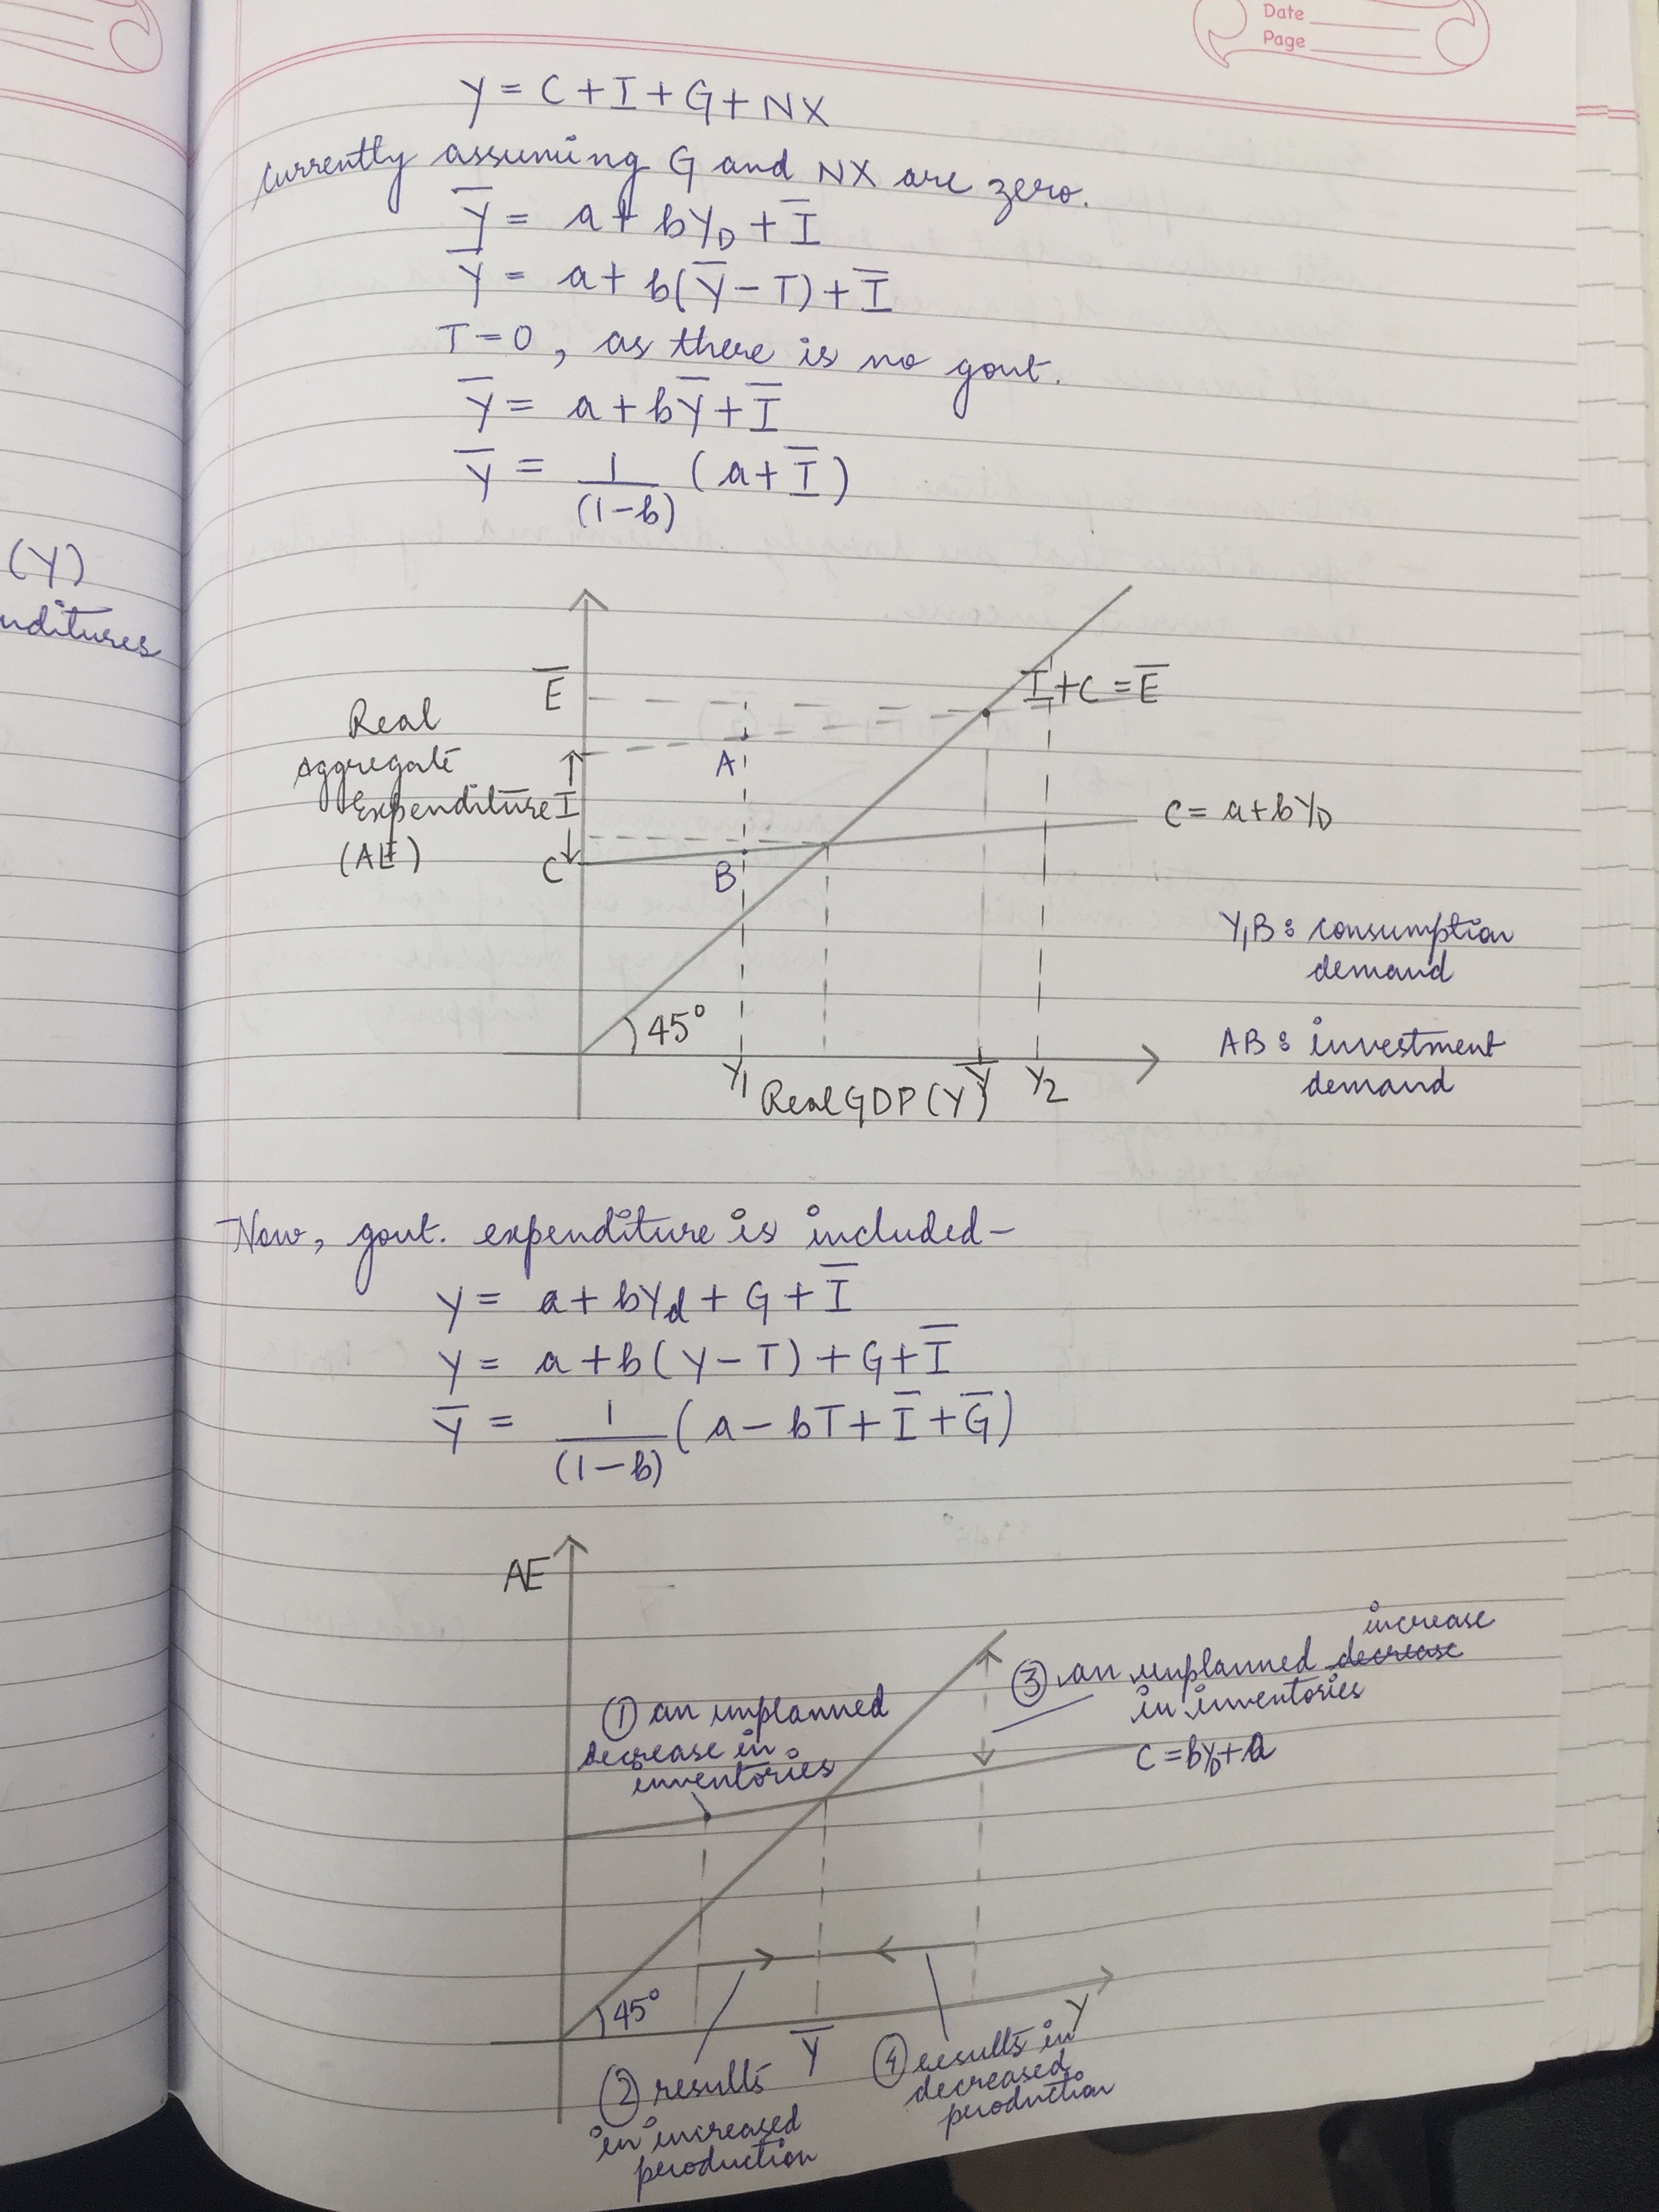 Date
Page
(Y)
nditures
Y = C + I + G + NX
currently assuming G and NX are zero.
Y̅ = a + bY_D + I̅
Y̅ = a + b(Y̅ - T) + I̅
T = 0, as there is no govt.
Y̅ = a + bY̅ + I̅
Y̅ = 1/(1-b) (a + I̅)
E̅
I̅ + C = E̅
Real
Aggregate
Expenditure
(AE)
I̅
A
C
B
C = a + bY_D
Y₁B : consumption
demand
45°
AB : investment
demand
Y₁
Real GDP (Y)
Y̅
Y₂
Now, govt. expenditure is included -
Y = a + bY_d + G + I̅
Y = a + b(Y - T) + G + I̅
Y̅ = 1/(1-b) (a - bT + I̅ + G̅)
AE
① an unplanned
decrease in
inventories
③ an unplanned decrease increase
in inventories
C = bY_D + a
45°
Y̅
Y
② results
in increased
production
④ results in
decreased
production